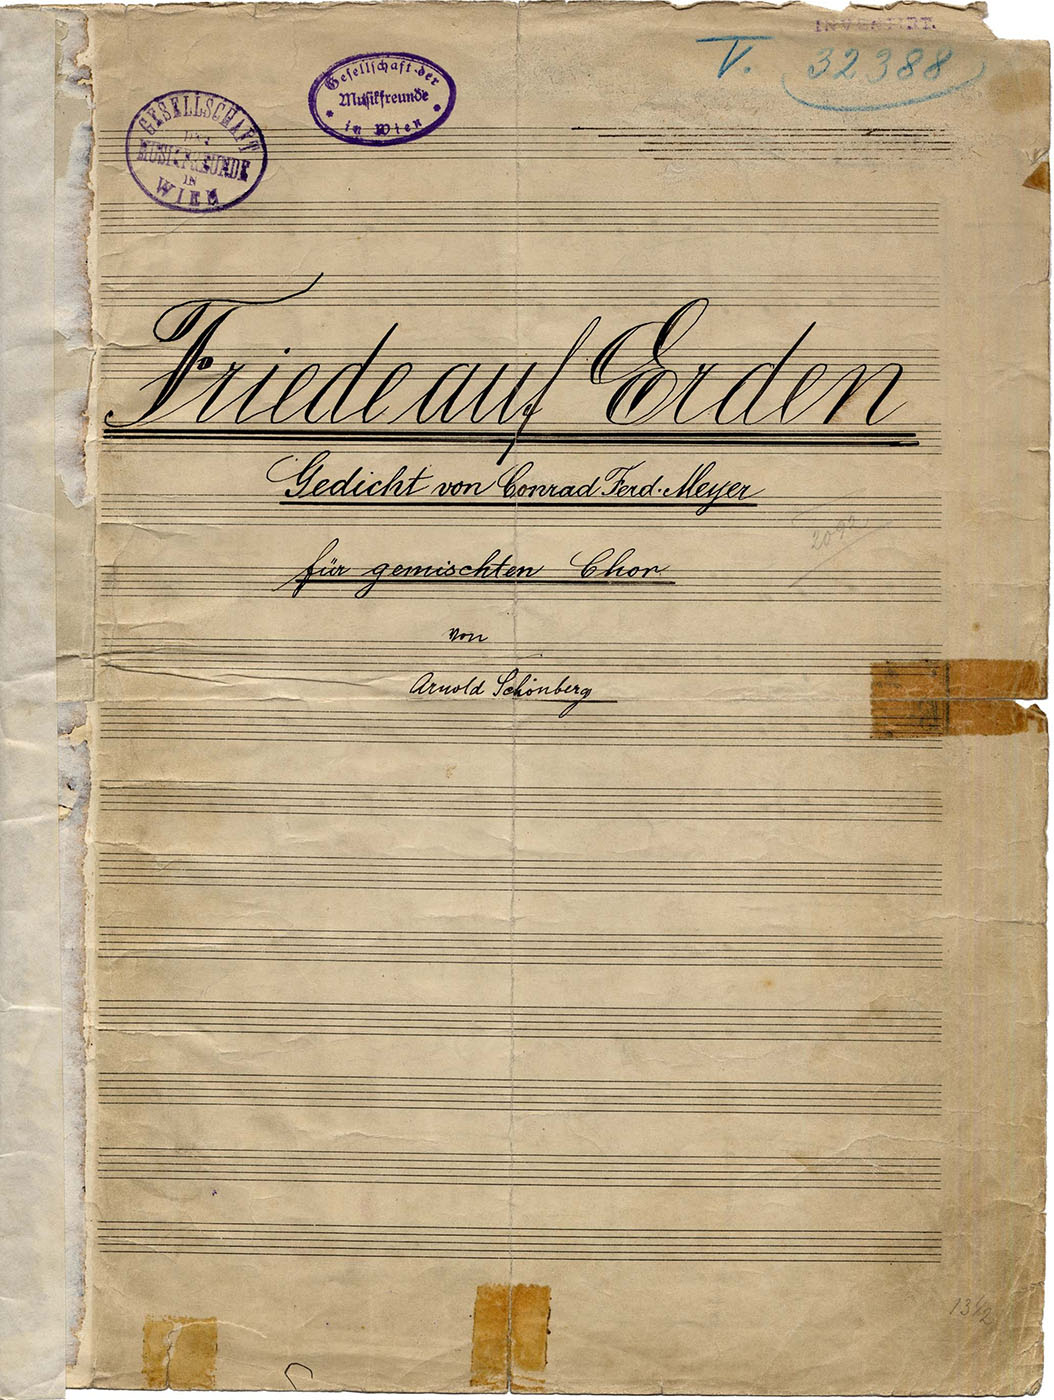 INVENTIRT.
V. 32388
Gesellschaft der
Musikfreunde
in Wien
GESELLSCHAFT
DER
MUSIKFREUNDE
IN
WIEN
Friede auf Erden
Gedicht von Conrad Ferd. Meyer
2092
für gemischten Chor
von
Arnold Schönberg
13½